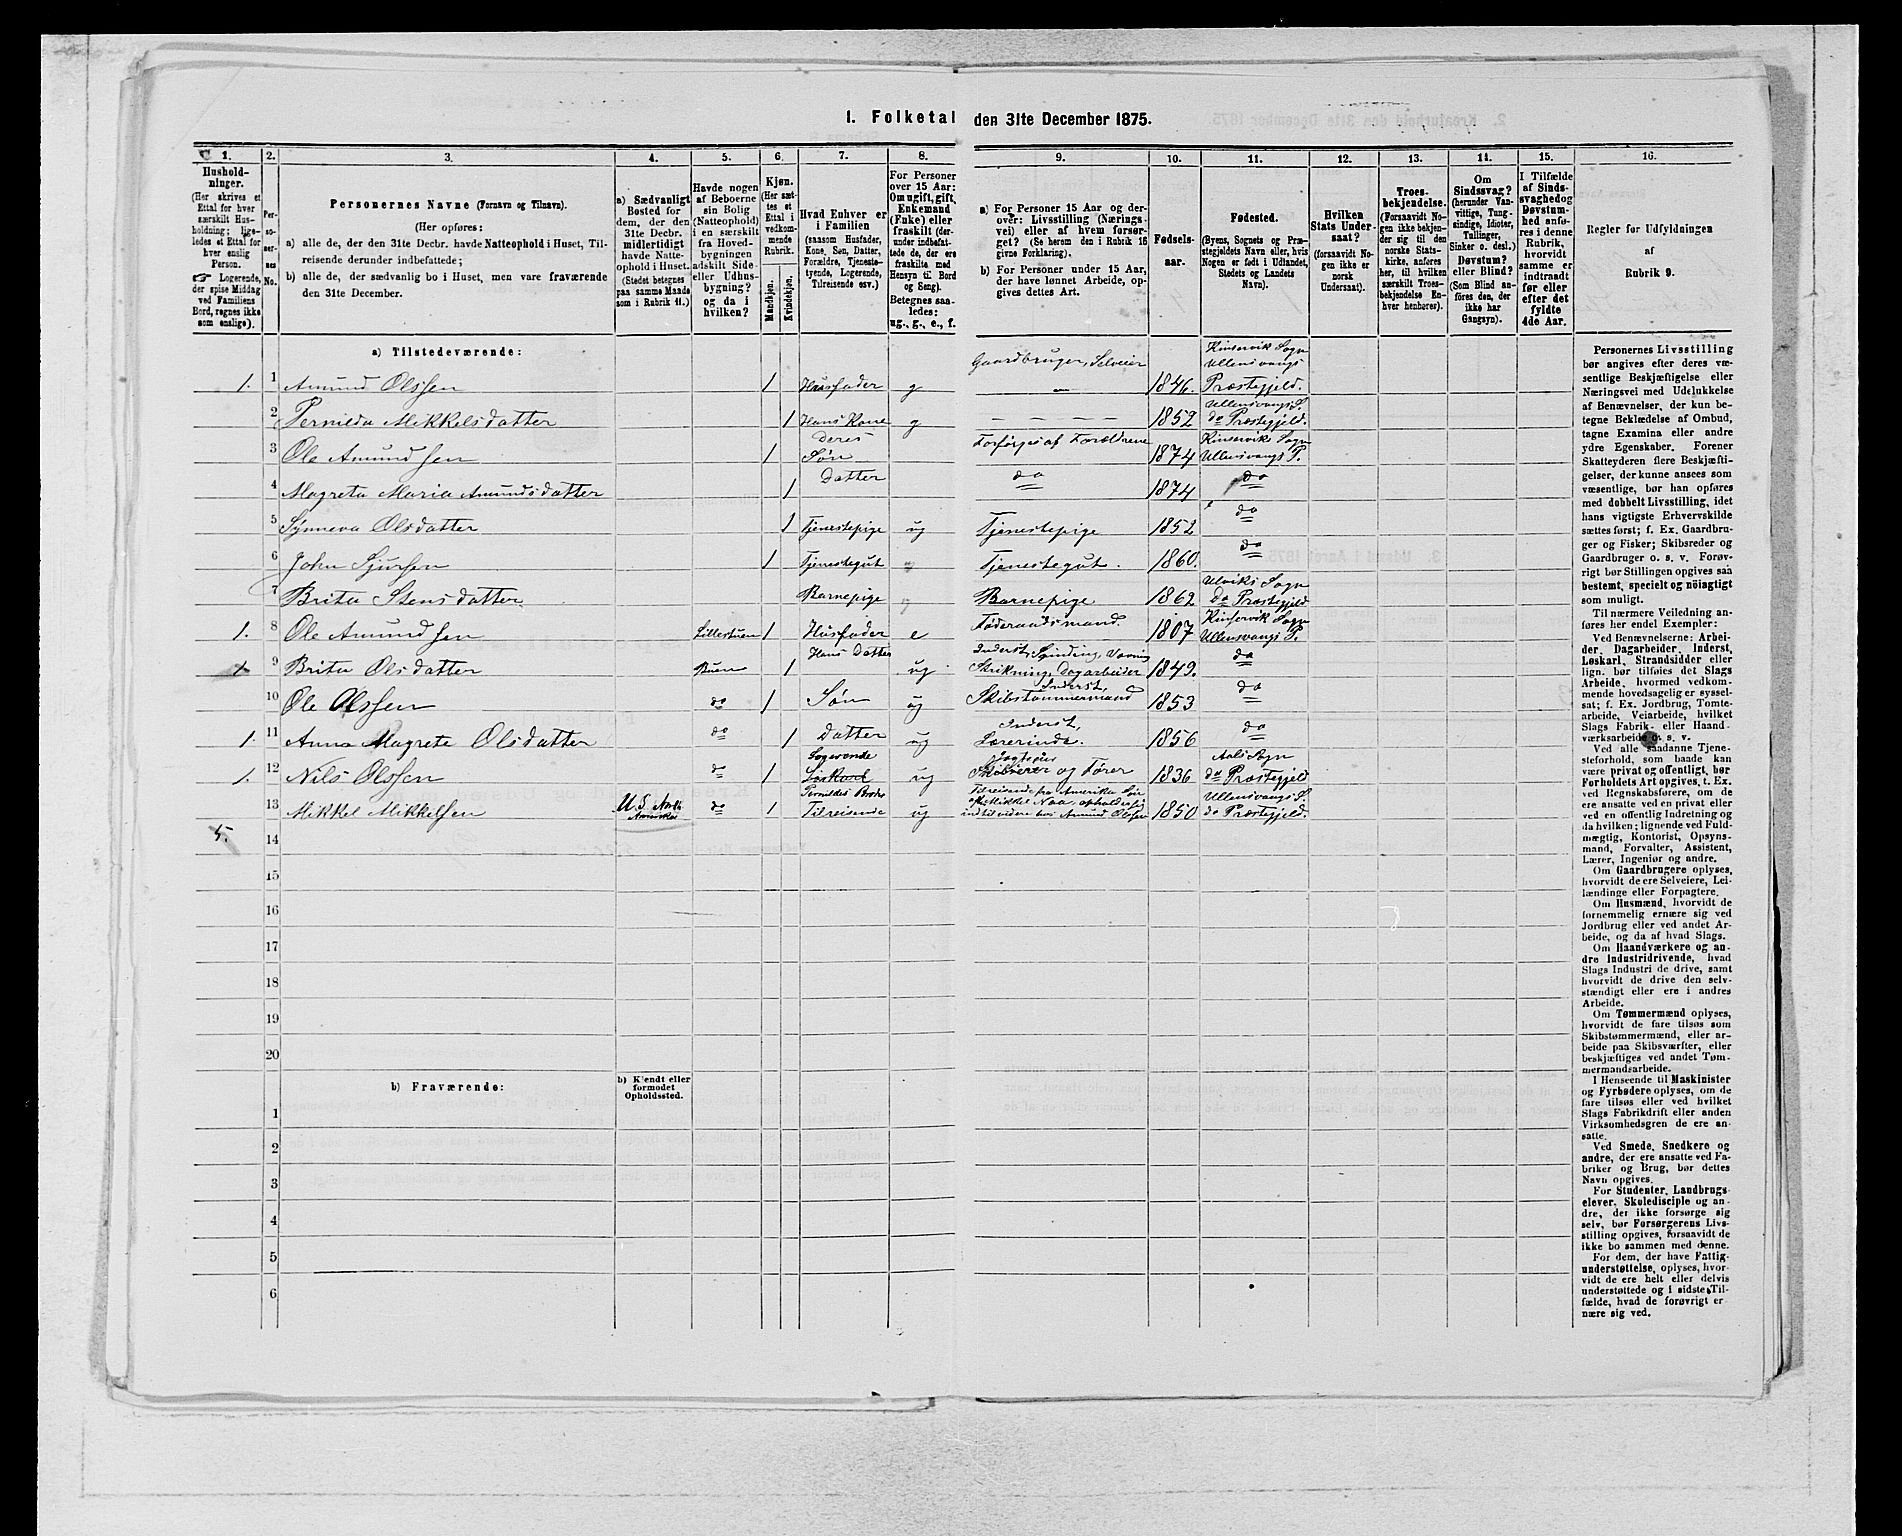 1. Folketal den 31te December 1875.
1. 2. 3. 4. 5. 6. 7. 8. 9. 10. 11. 12. 13. 14. 15. 16.
Husholdninger.
(Her skrives et
Ettal for hver
særskilt Husholdning; ligeledes et Ettal for
hver enslig
Person.
☞ Logerende,
der spise Middag
ved Familiens
Bord, regnes ikke
som enslige).
Personernes No.
Personernes Navne (Fornavn og Tilnavn).
(Her opføres:
a) alle de, der den 31te Decbr. havde Natteophold i Huset, Tilreisende derunder indbefattede;
b) alle de, der sædvanlig bo i Huset, men vare fraværende
den 31te December.
a) Sædvanligt
Bosted for
dem, der den
31te Decbr.
midlertidigt
havde Natteophold i Huset.
(Stedet betegnes
paa samme Maade
som i Rubrik 11.)
Havde nogen
af Beboerne
sin Bolig
(Natteophold)
i en særskilt
fra Hovedbygningen
adskilt Side
eller Udhusbygning?
og da i
hvilken?
Kjøn.
(Her sættes et
Ettal i
vedkommende
Rubrik.
Mandkjøn.
Kvindekjøn.
Hvad Enhver er
i Familien
(saasom Husfader,
Kone, Søn, Datter,
Forældre, Tjenestetyende, Logerende,
Tilreisende osv.)
For Personer
over 15 Aar:
Om ugift, gift,
Enkemand
(Enke) eller
fraskilt (derunder indbefattede de, der ere
fraskilte med
Hensyn til Bord
og Seng).
Betegnes saaledes:
ug., g., e., f.
a) For Personer 15 Aar og derover: Livsstilling (Næringsvei) eller af hvem forsørget? (Se herom den i Rubrik 16
givne Forklaring).
b) For Personer under 15 Aar,
der have lønnet Arbeide, opgives dettes Art.
Fødselsaar.
Fødested.
(Byens, Sognets og Præstegjeldets Navn eller, hvis
Nogen er født i Udlandet,
Stedets og Landets
Navn).
Hvilken
Stats Undersaat?
(forsaavidt Nogen ikke er
norsk
Undersaat).
Troesbekjendelse.
(Forsaavidt Nogen ikke bekjender sig til den
norske Statskirke, anføres
her, til hvilken
særskilt Troesbekjendelse Enhver henhører).
Om
Sindssvag?
(herunder Vanvittige, Tungsindige, Idioter,
Tullinger,
Sinker o. desl.)
Døvstum?
eller Blind?
(Som Blind anføres den, der
ikke har
Gangsyn).
I Tilfælde
af Sindssvaghed og
Døvstumhed anføres i denne
Rubrik,
hvorvidt
samme er
indtraadt
før eller
efter det
fyldte
4de Aar.
Regler for Udfyldningen
af
Rubrik 9.
a) Tilstedeværende:
1. 1 Amund Olssen 1 Husfader g Gaardbruger, Selveier 1846 Kinservik Sogn Ullensvangs Præstegjeld.
2 Pernilda Mikkelsdatter 1 Hans Kone g — — — — 1852 Ullensvangs S. do Præstegjeld.
3 Ole Amundsen 1 Deres Søn Forsørges af Forældrene 1874 Kinservik Sogn Ullensvangs P.
4 Magreta Maria Amundsdatter 1 Datter do 1874 do
5 Synneva Olsdatter 1 Tjenestepige ug Tjenestepige 1852 do
6 John Sjursen 1 Tjenestegut Tjenestegut. 1860. do
7 Brita Stensdatter Barnepige Barnepige 1862 Ulviks Sogn do Præstegjeld
1. 8 Ole Amundsen Lillestuen 1 Husfader e Føderaadsmand. 1807 Kinservik Sogn Ullensvangs P.
1 9 Brita Olsdatter Buen 1 Hans Datter ug Inderst, Spinding, Vævning Strikning, Dagarbeider 1849. do
10 Ole Olssen do 1 Søn ug Inderst, Skibstømmermand 1853 do
1. 11 Anna Magrete Olsdatter do 1 Datter ug Inderst, Lærerinde. 1856 do
1. 12 Nils Olssen do 1 Logerende ug og Fører 1836 Aals Sogn do Præstegjeld
13 Mikkel Mikkelsen U.S. Amerika do 1 Pernildes Broder Tilreisende ug Tilreisende fra Amerika Søn af Mikkel Naa, opholder sig indtil videre hos Amund Olssen 1850 Ullensvangs S. do Præstegjeld.
5.
14
15
16
17
18
19
20
b) Fraværende:
b) Kjendt eller
formodet
Opholdssted.
1
2
3
4
5
6
Personernes Livsstilling
bør angives efter deres væsentlige Beskjæftigelse eller
Næringsvei med Udelukkelse
af Benævnelser, der kun betegne Beklædelse af Ombud,
tagne Examina eller andre
ydre Egenskaber. Forener
Skatteyderen flere Beskjæftigelser, der kunne ansees som
væsentlige, bør han opføres
med dobbelt Livsstilling, idet
hans vigtigste Erhvervskilde
sættes først; f. Ex. Gaardbruger og Fisker; Skibsreder og
Gaardbruger o. s. v. Forøvrigt bør Stillingen opgives saa
bestemt, specielt og nøiagtigt
som muligt.
Til nærmere Veiledning anføres her endel Exempler:
Ved Benævnelserne: Arbeider, Dagarbeider, Inderst,
Løskarl, Strandsidder eller
lign. bør tilføies det Slags
Arbeide, hvormed vedkommende hovedsagelig er sysselsat; f. Ex. Jordbrug, Tomtearbeide, Veiarbeide, hvilket
Slags Fabrik- eller Haandværksarbeide o. s. v.
Ved alle saadanne Tjenesteforhold, som baade kan
være privat og offentligt, bør
Forholdets Art opgives, t. Ex.
ved Regnskabsførere, om de
ere ansatte ved en privat eller
ved en offentlig Indretning og
da hvilken; lignende ved Fuldmægtig, Kontorist, Opsynsmand, Forvalter, Assistent,
Lærer, Ingeniør og andre.
Om Gaardbrugere oplyses,
hvorvidt de ere Selveiere, Leilændinge eller Forpagtere.
Om Husmænd, hvorvidt de
fornemmelig ernære sig ved
Jordbrug eller ved andet Arbeide, og da af hvad Slags.
Om Haandværkere og andre Industridrivende, hvad
Slags Industri de drive, samt
hvorvidt de drive den selvstændigt eller ere i andres
Arbeide.
Om Tømmermænd oplyses,
hvorvidt de fare tilsøs som
Skibstømmermænd, eller arbeide paa Skibsværfter, eller
beskjæftiges ved andet Tømmermandsarbeide.
I Henseende til Maskinister
og Fyrbødere oplyses, om de
fare tilsøs eller ved hvilket
Slags Fabrikdrift eller anden
Virksomhedsgren de ere ansatte.
Ved Smede, Snedkere og
andre, der ere ansatte ved Fabriker og Brug, bør dettes
Navn opgives.
For Studenter, Landbrugselever, Skoledisciple og andre, der ikke forsørge sig
selv, bør Forsørgerens Livsstilling opgives, forsaavidt de
ikke bo sammen med denne.
For dem, der have Fattigunderstøttelse, oplyses, hvorvidt de ere helt eller delvis
understøttede og i sidste Tilfælde, hvad de forøvrigt ernære sig ved.